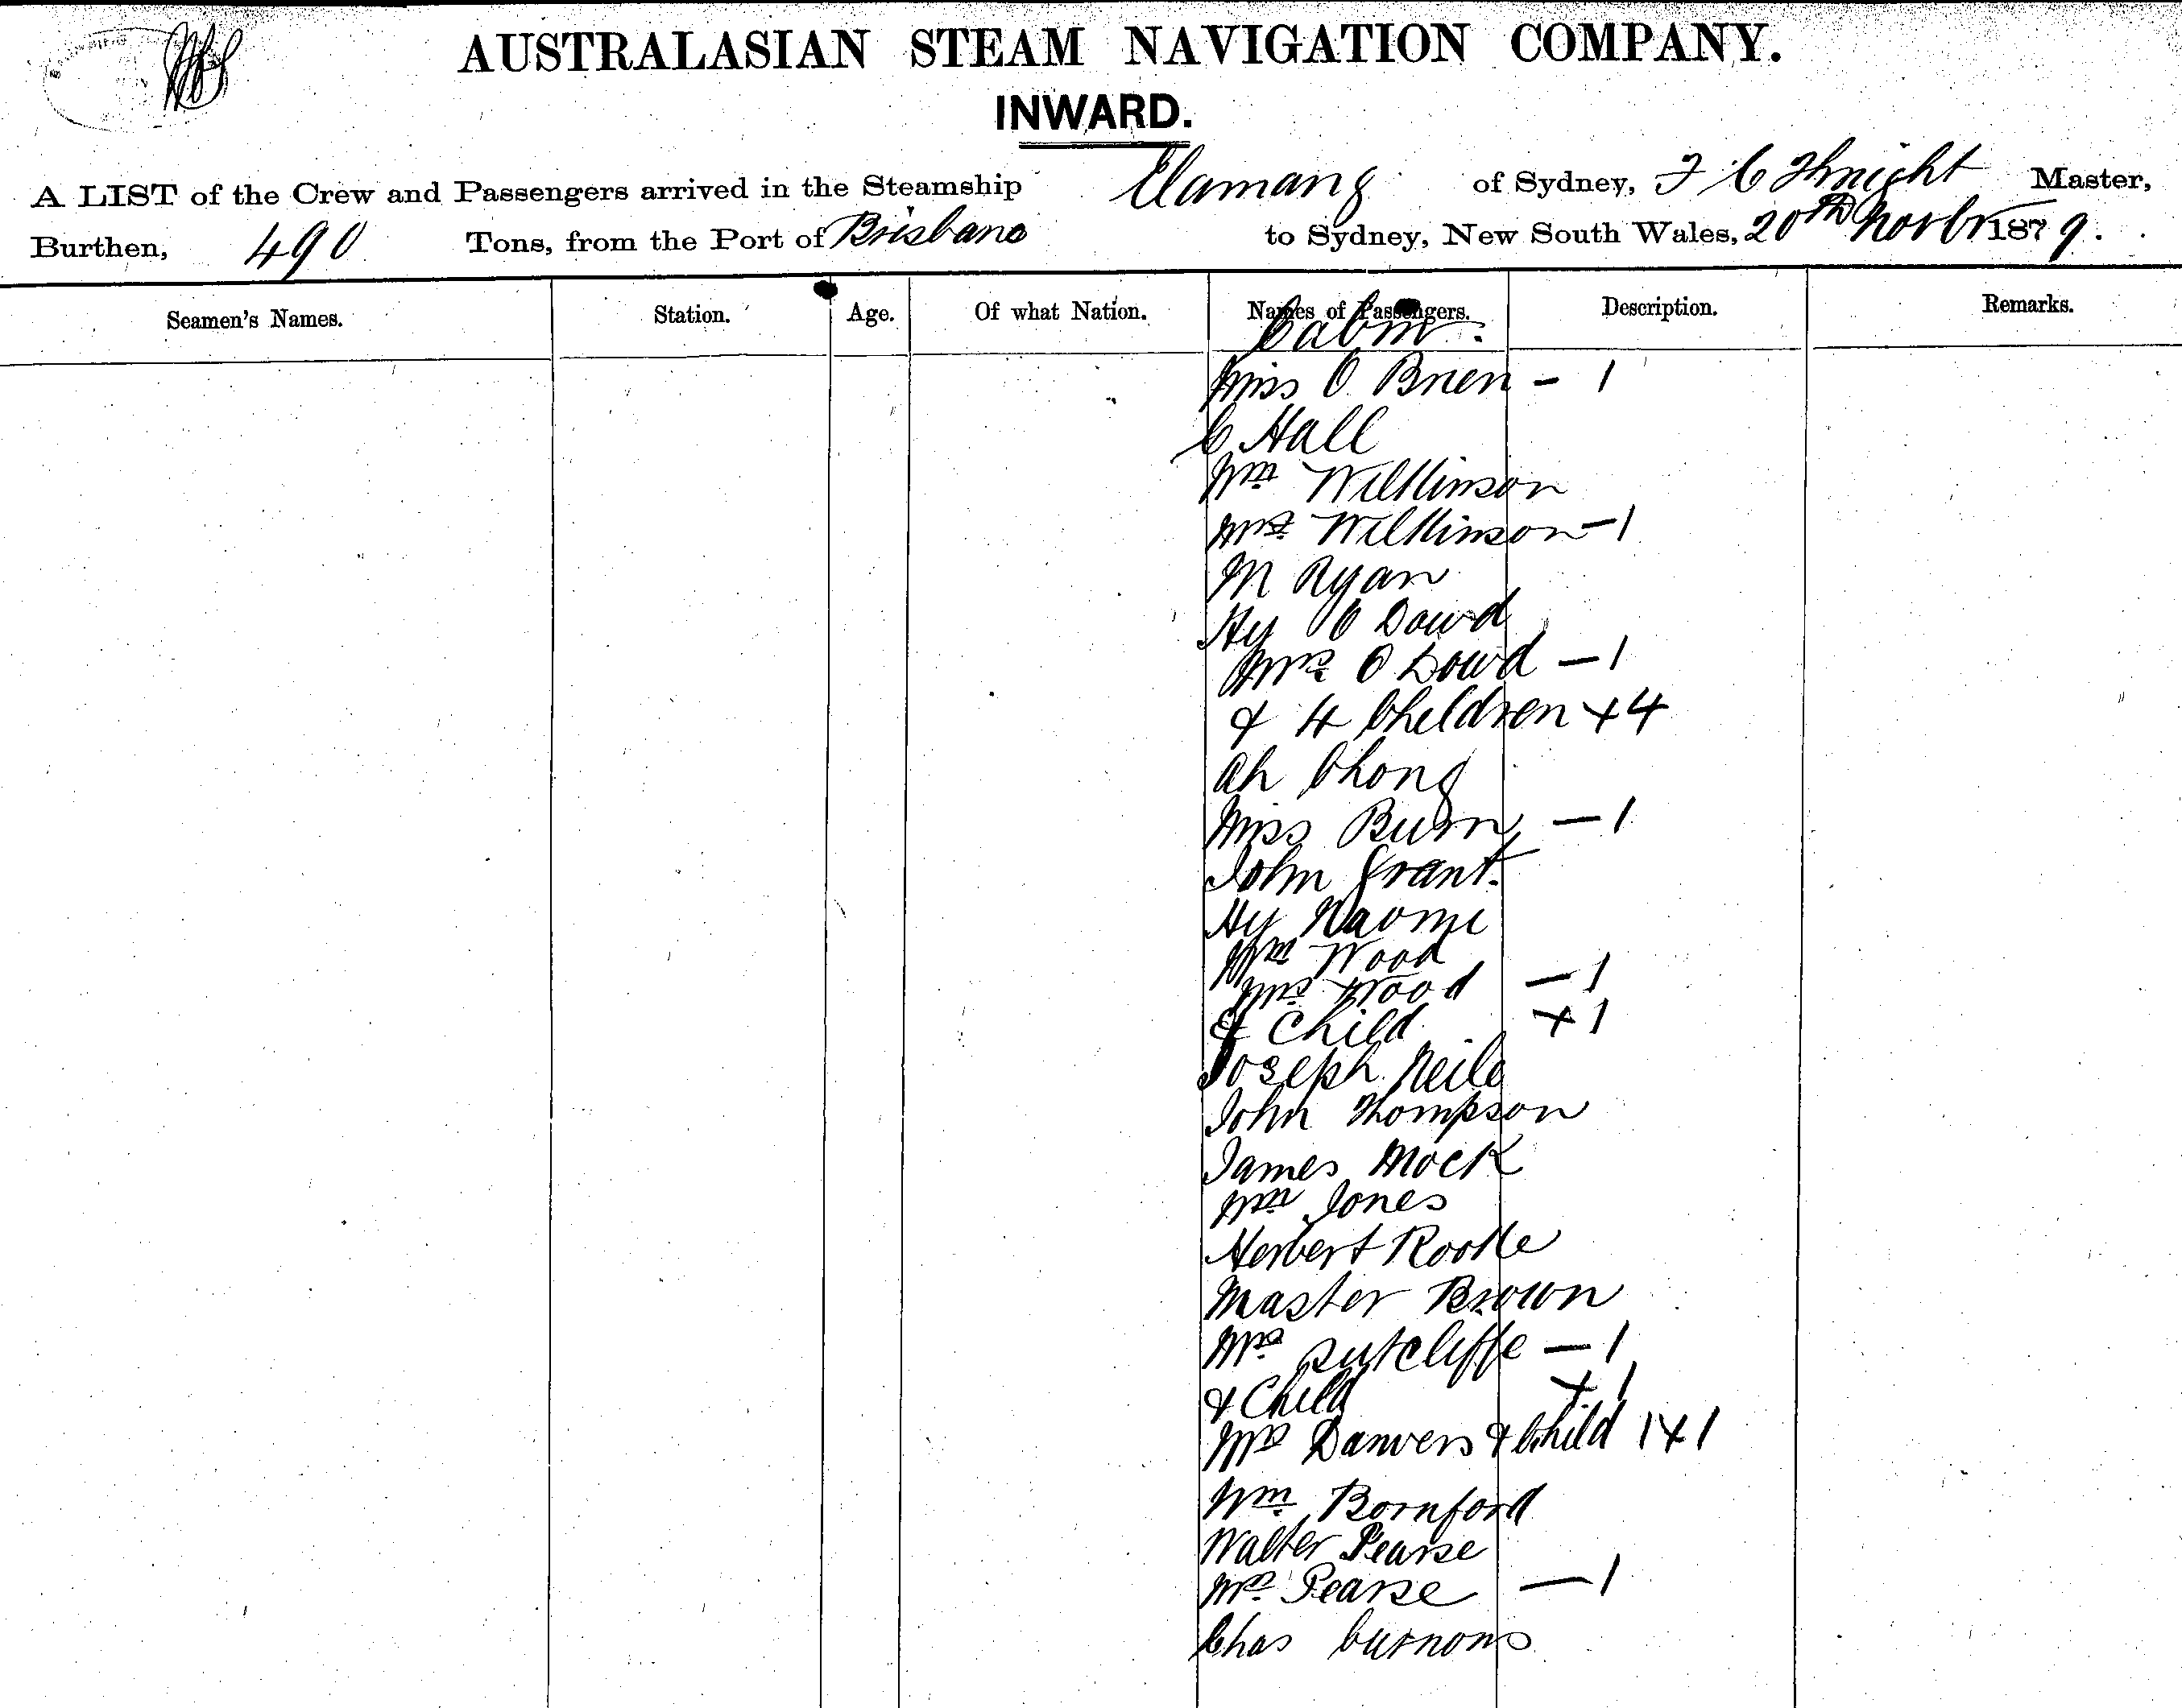 AUSTRALASIAN STEAM NAVIGATION COMPANY.
INWARD.
A LIST of the Crew and Passengers arrived in the Steamship Elamang of Sydney, F C Knight Master,
Burthen, 490 Tons, from the Port of Brisbane to Sydney, New South Wales, 20th Novbr 1879.
Seamen's Names. Station. Age. Of what Nation. Names of Passengers. Description. Remarks.
Cabin
Miss O Brien - 1
C Hall
Wm Wilkinson
Mrs Wilkinson - 1
M Ryan
Hy O Dowd
Mrs O Dowd - 1
& 4 Children + 4
Ah Chong
Miss Burn - 1
John Grant
Hy Naomi
Wm Wood
Mrs Wood - 1
& Child + 1
Joseph Neile
John Thompson
James Mock
Wm Jones
Herbert Rooke
Master Brown
Mrs Sutcliffe - 1
& Child + 1
Mrs Danvers & Child 1 + 1
Wm Bornford
Walter Pearse
Mrs Pearse - 1
Chas